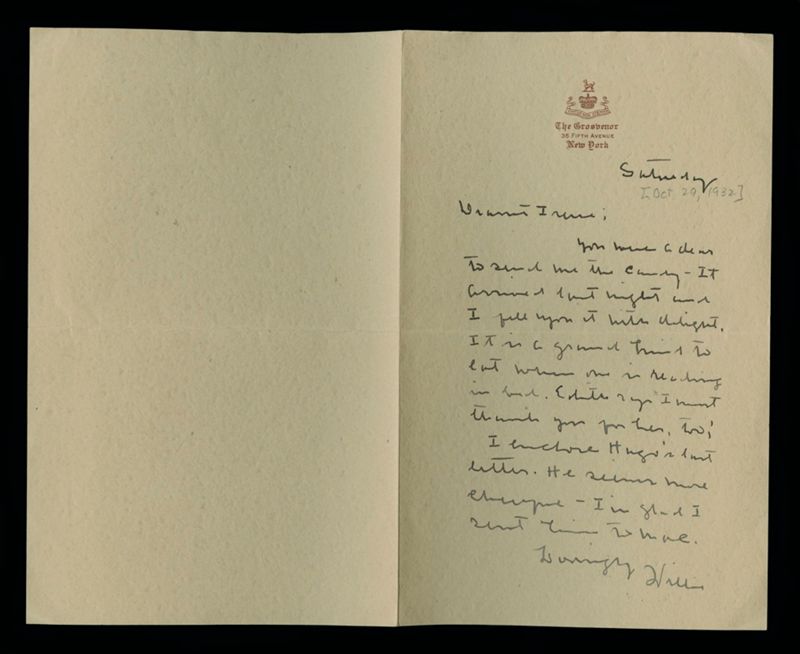 The Grosvenor
35 Fifth Avenue
New York
Saturday
[Oct 29, 1932]
Dearest Irene;
You were a dear
to send me the candy - It
arrived last night and
I fell upon it with delight.
It is a grand kind to
eat when one is reading
in bed. Edith says I must
thank you for her, too;
I enclose Hugo's last
letter. He seems more
cheerful - I'm glad I
sent him to
Lovingly
Willie